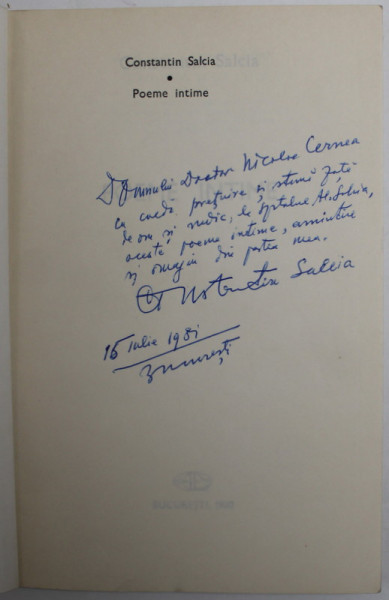 Constantin Salcia
•
Poeme intime
Domnului Doctor Nicolae Cernea
cu prețuire și stimă față
de om și medic, de Spitalul Al. Sahia,
aceste poeme intime, amintire
și omagiu din partea mea.
Constantin Salcia
15 Iulie 1981
București